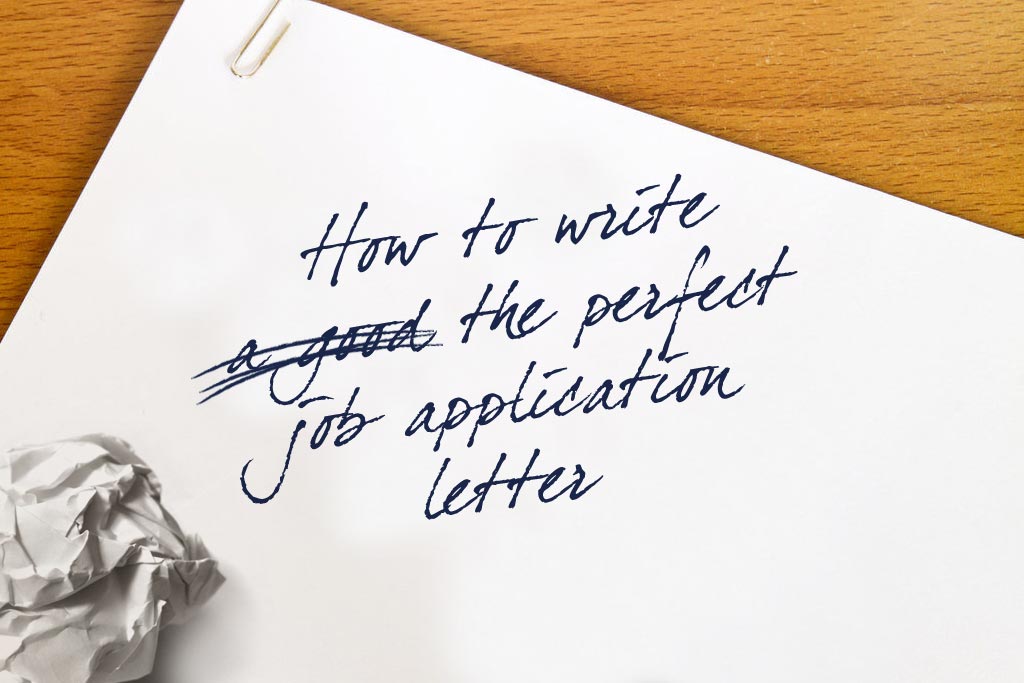 How to write
a good the perfect
job application
letter